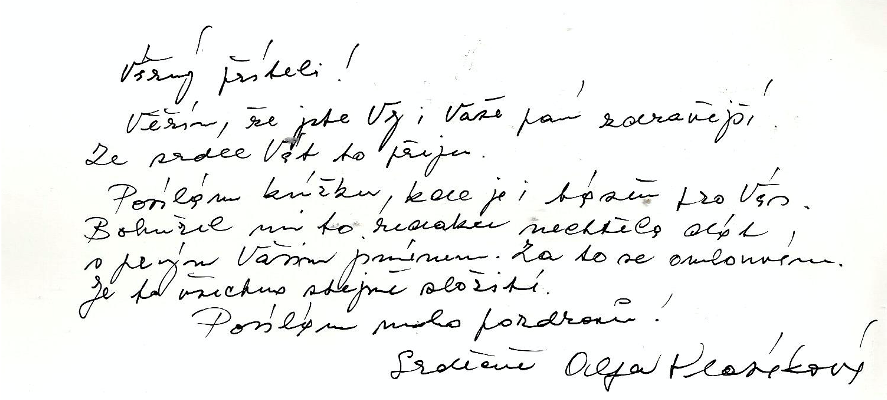 Věrný příteli!
Věřím, že jste Vy i Vaše paní zdravější.
Ze srdce Vát to přeju.
Posílám knížku, kde je i báseň pro Vás.
Bohužel mi to redakce nechtěla dát,
s pevým Vaším jménem. Za to se omlouvám.
Je to všechno stejně složité.
Posílám mnoho pozdravů!
Srdečně Olja